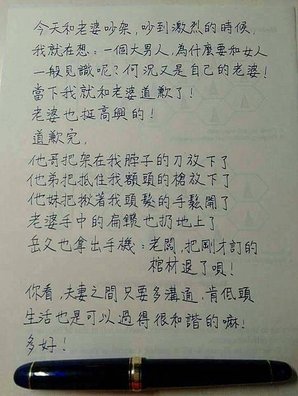 今天和老婆吵架，吵到激烈的時候，
我就在想：一個大男人，為什麼要和女人
一般見識呢？何況又是自己的老婆！
當下我就和老婆道歉了！
老婆也挺高興的！
道歉完，
他哥把架在我脖子的刀放下了
他弟把抵住我額頭的槍放下了
他妹把揪著我頭髮的手鬆開了
老婆手中的扁鑽也扔地上了
岳父也拿出手機：老闆，把剛才訂的
棺材退了唄！
你看，夫妻之間只要多溝通，肯低頭
生活也是可以過得很和諧的嘛！
多好！